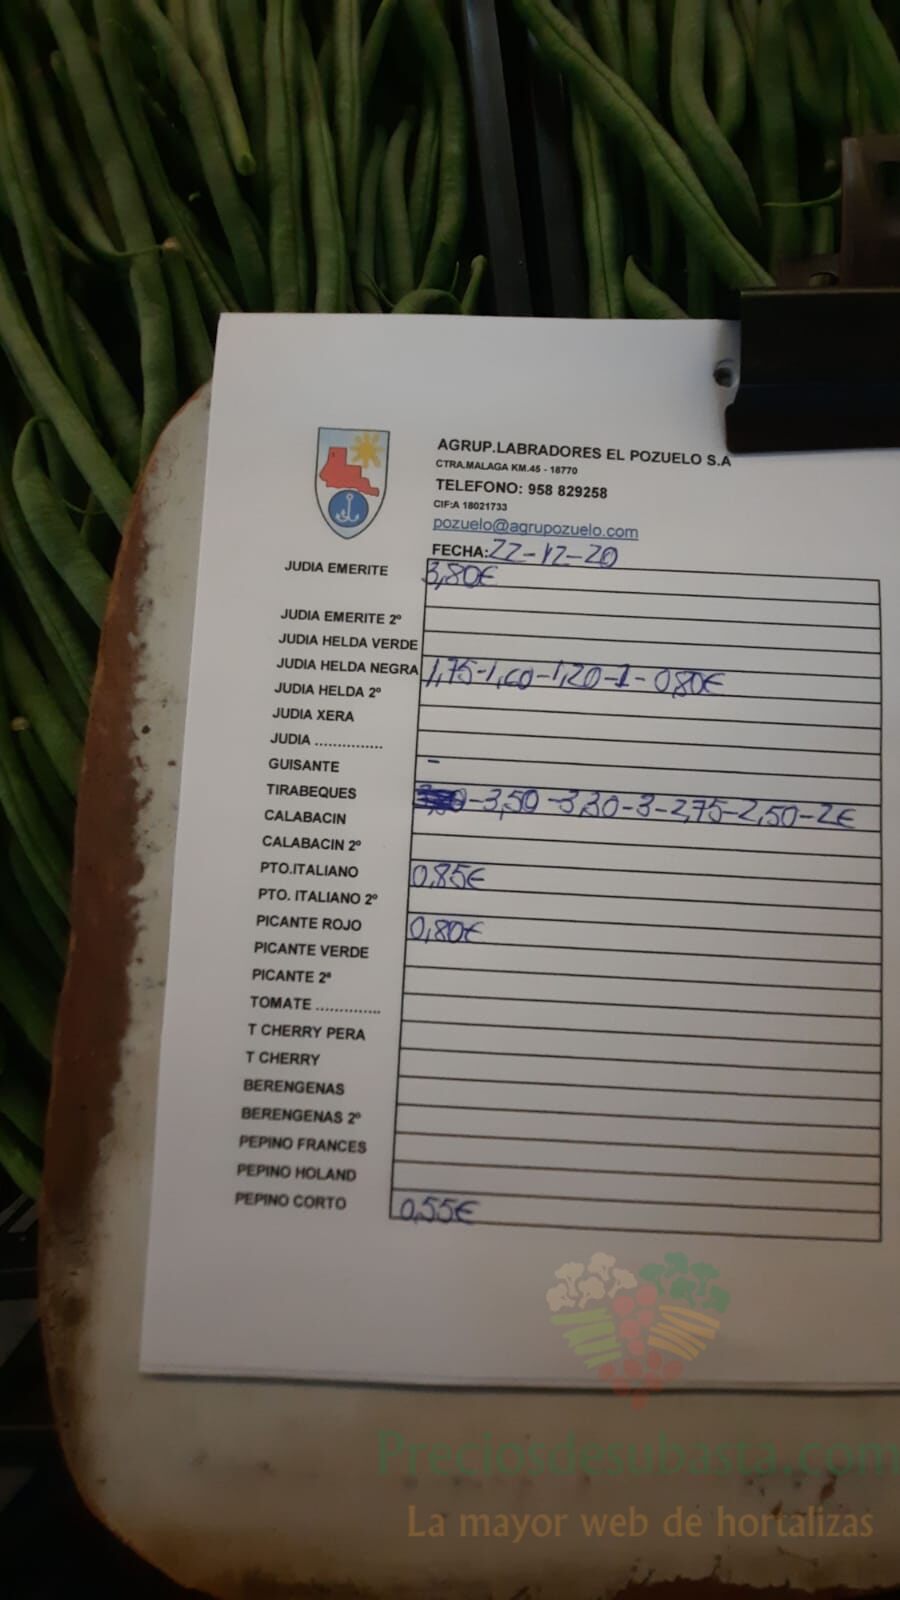 AGRUP.LABRADORES EL POZUELO S.A
CTRA.MALAGA KM.45 - 18770
TELEFONO: 958 829258
CIF:A 18021733
pozuelo@agrupozuelo.com
FECHA: 22-12-20
JUDIA EMERITE 3,80€
JUDIA EMERITE 2º
JUDIA HELDA VERDE
JUDIA HELDA NEGRA 1,75-1,60-1,20-1-0,80€
JUDIA HELDA 2º
JUDIA XERA
JUDIA ...............
GUISANTE -
TIRABEQUES -3,50-3,30-3-2,75-2,50-2€
CALABACIN
CALABACIN 2º
PTO.ITALIANO 0,85€
PTO. ITALIANO 2º
PICANTE ROJO 0,80€
PICANTE VERDE
PICANTE 2ª
TOMATE ..............
T CHERRY PERA
T CHERRY
BERENGENAS
BERENGENAS 2º
PEPINO FRANCES
PEPINO HOLAND
PEPINO CORTO 0,55€
Preciosdesubasta.com
La mayor web de hortalizas